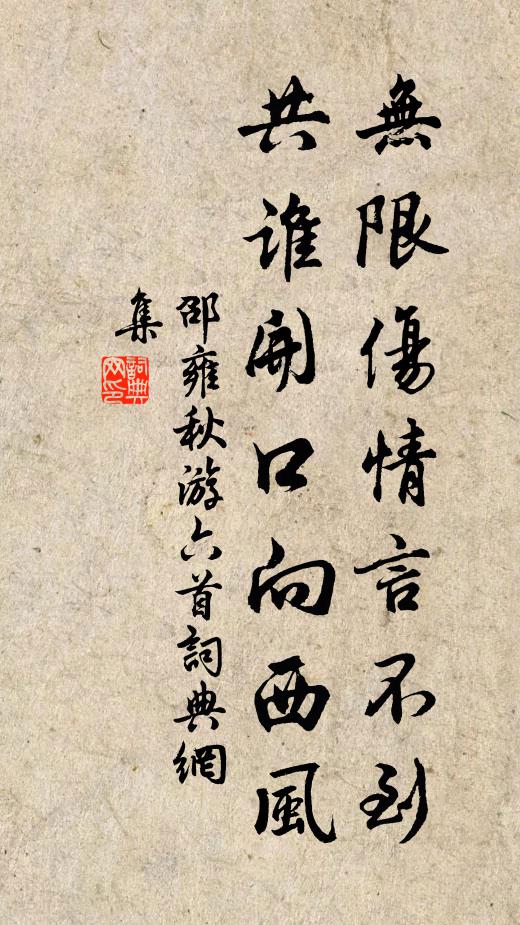 無限傷情言不到
共誰開口向西風
邵雍秋游六首詞典網
集
詞典
网印